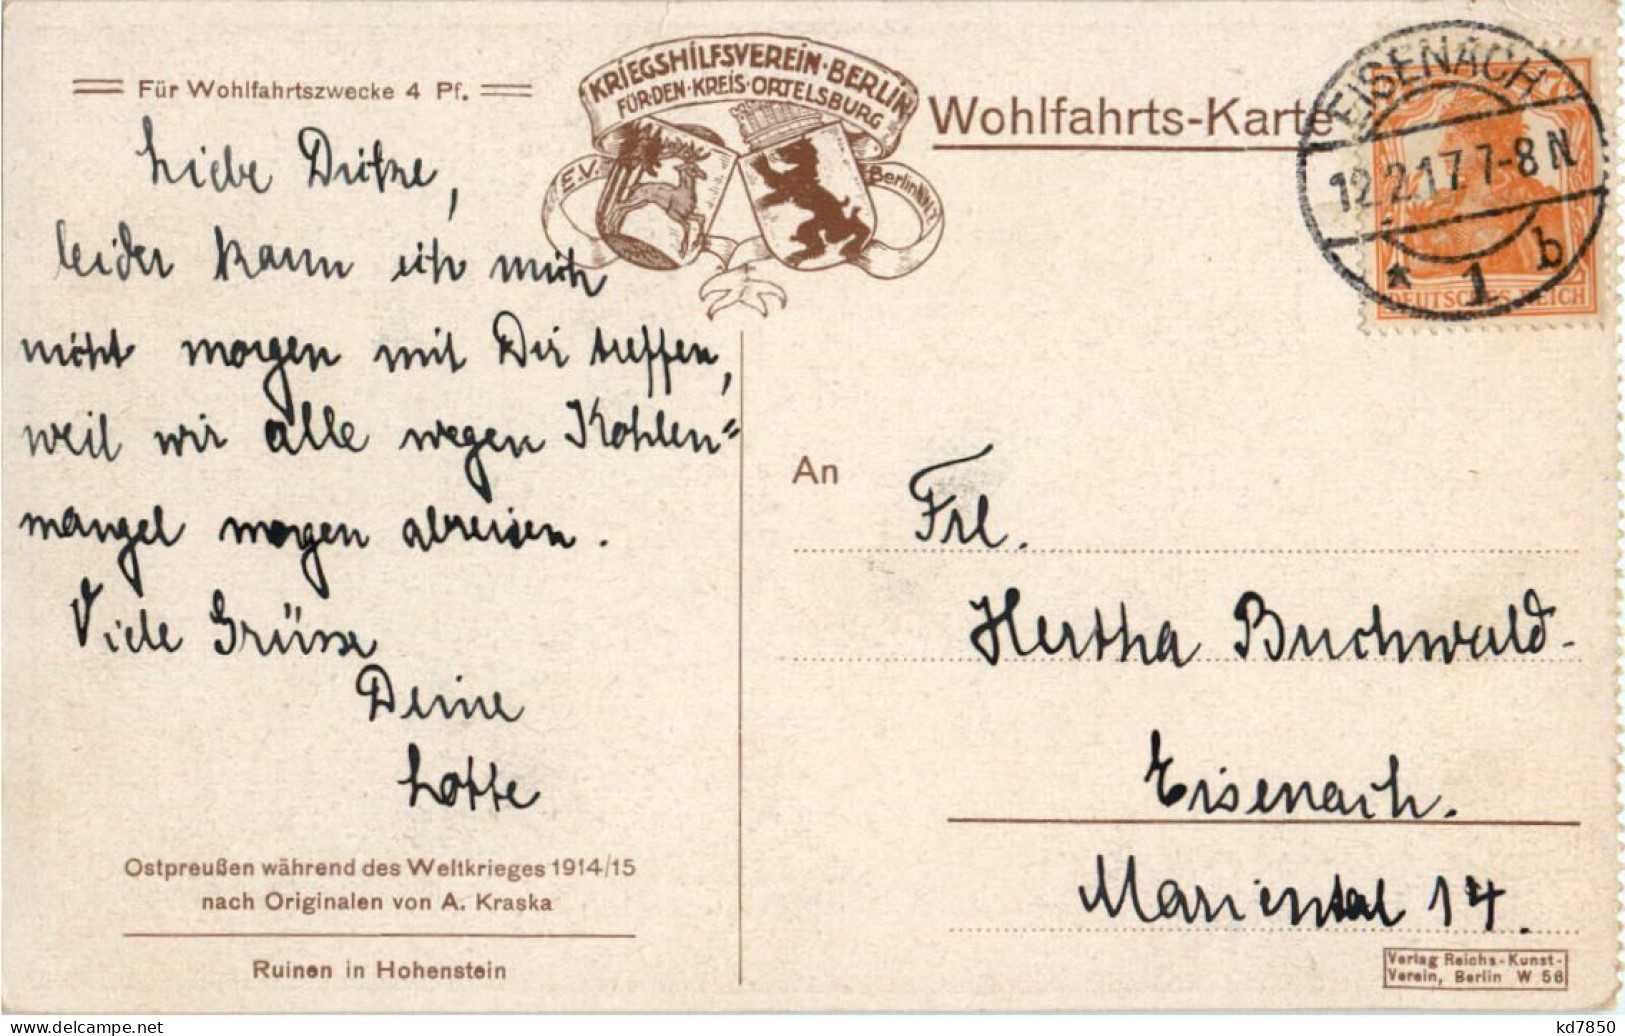 Für Wohlfahrtszwecke 4 Pf.
KRIEGSHILFSVEREIN · BERLIN
FÜR · DEN · KREIS · ORTELSBURG
E.V.
Berlin NW.7
Wohlfahrts-Karte
EISENACH
12.2.17.7-8 N
* 1 b
DEUTSCHES REICH
Liebe
leider kann ich mich
nicht morgen mit Dir treffen,
weil wir alle wegen Kohlen=
mangel morgen abreisen.
Viele Grüsse
Deine
Lotte
Ostpreußen während des Weltkrieges 1914/15
nach Originalen von A. Kraska
Ruinen in Hohenstein
An
Frl.
Hertha Buchwald
Eisenach.
Mariental 14.
Verlag Reichs-Kunst-
Verein, Berlin W 56
kd7850